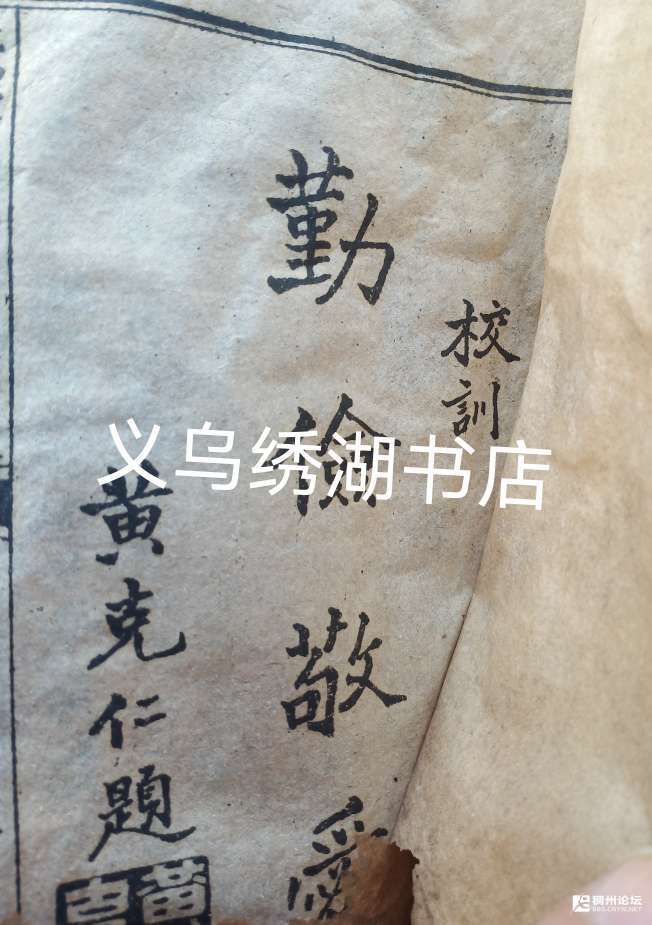 校訓
勤儉敬愛
黄克仁題
义乌绣湖书店
稠州论坛
BBS.CNYW.NET